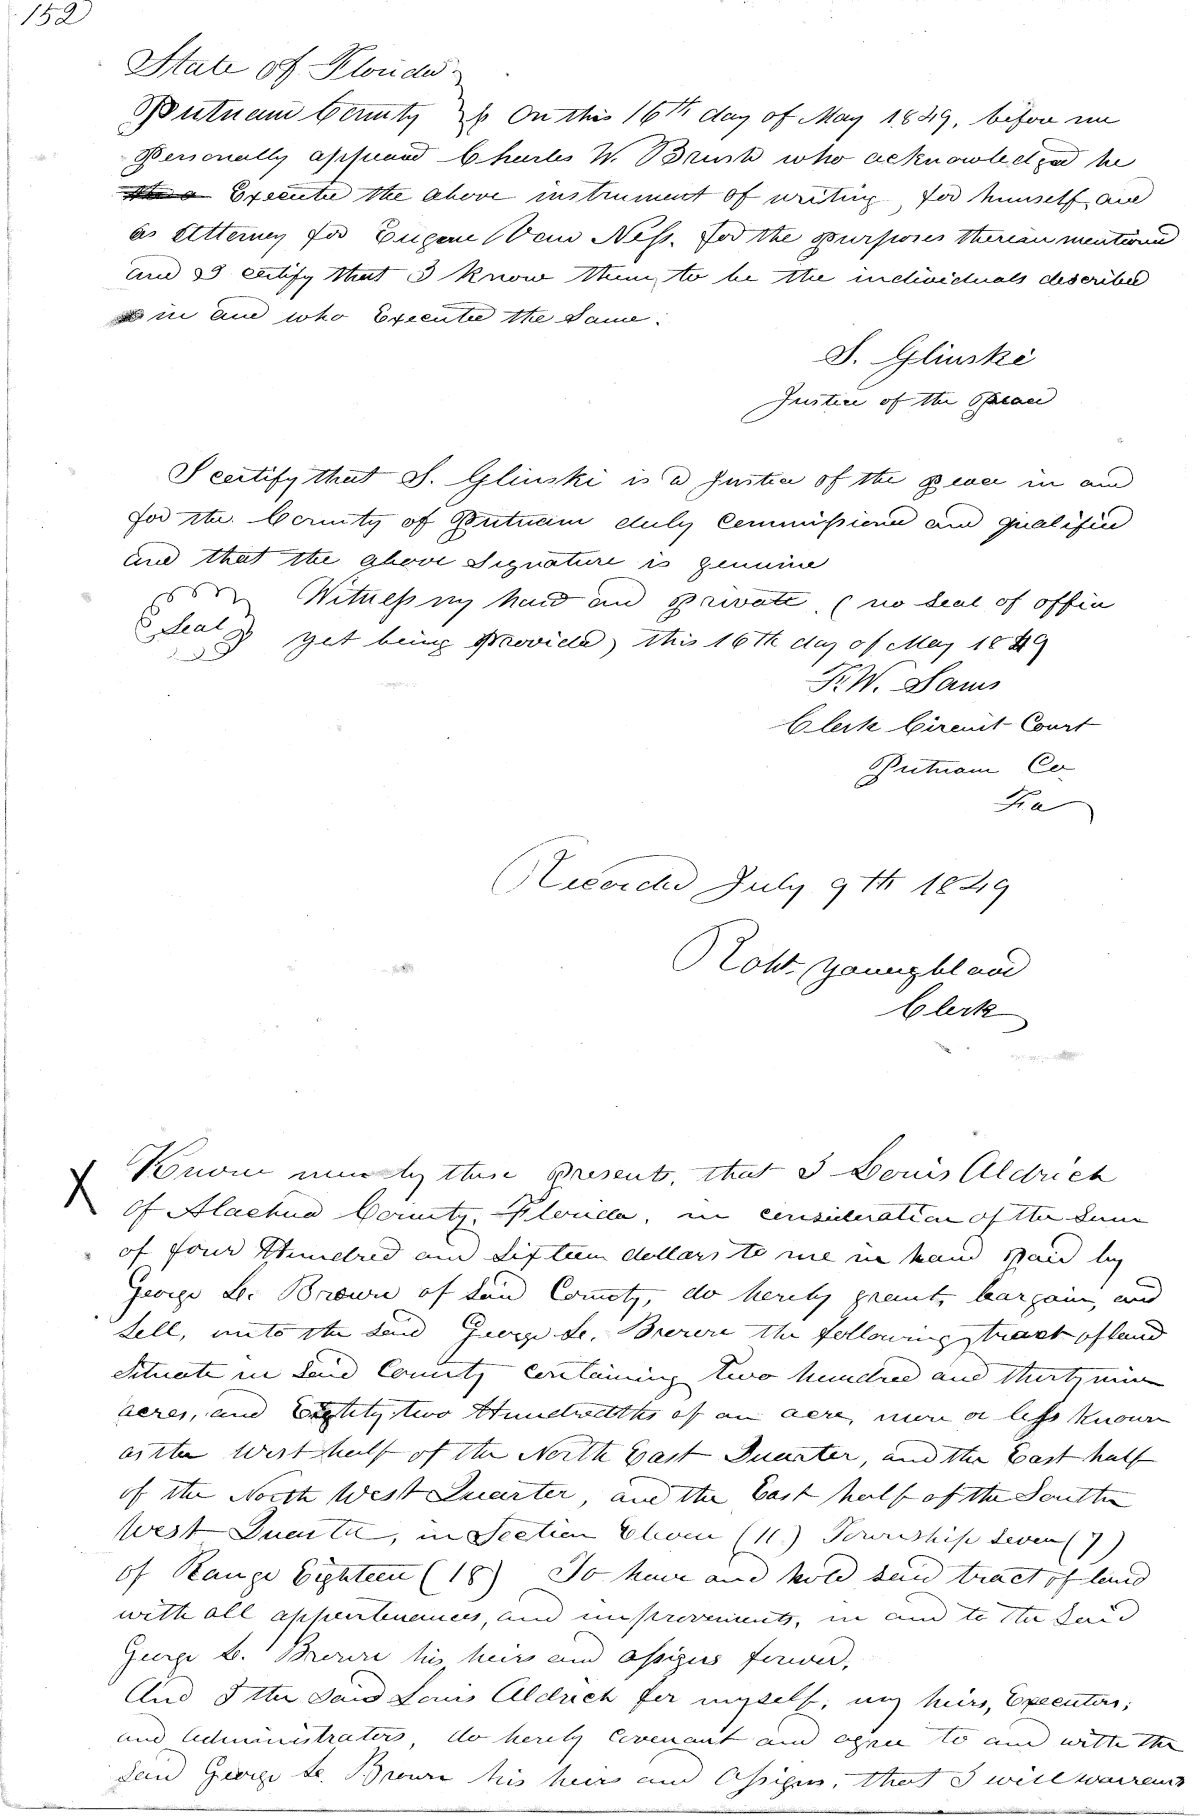 152
State of Florida
Putnam County } ss On this 16th day of May 1849, before me
Personally appeared Charles W. Brush who acknowledged he
Executed the above instrument of writing, for himself and
as Attorney for Eugene Van Ness. for the purposes therein mentioned
and I certify that I know them to be the individuals described
in and who Executed the Same.
S. Glinski
Justice of the Peace
I certify that S. Glinski is a Justice of the peace in and
for the County of Putnam duly Commissioned and qualified
and that the above Signature is genuine
Witness my hand and private (no Seal of office
Seal
yet being provided) this 16th day of May 1849
F. W. Sams
Clerk Circuit Court
Putnam Co
Fla
Recorded July 9th 1849
Robt. Youngblood
Clerk
X Know men by these presents, that I Louis Aldrich
of Alachua County, Florida, in consideration of the Sum
of four Hundred and Sixteen dollars to me in hand paid by
George L. Brown of Said County, do hereby grant, bargain, and
Sell, unto the Said George L. Brown the following tract of land
Situate in Said County containing two hundred and thirty nine
acres, and Eighty two Hundredths of an acre, more or less known
as the West half of the North East Quarter, and the East half
of the North West Quarter, and the East half of the South
West Quarter, in Section Eleven (11) Township Seven (7)
of Range Eighteen (18) To have and hold said tract of land
with all appurtenances, and improvements, in and to the Said
George L. Brown his heirs and assigns forever.
And I the Said Louis Aldrich for myself, my heirs, Executors,
and Administrators, do hereby covenant and agree to and with the
Said George L. Brown his heirs and Assigns, that I will warrant